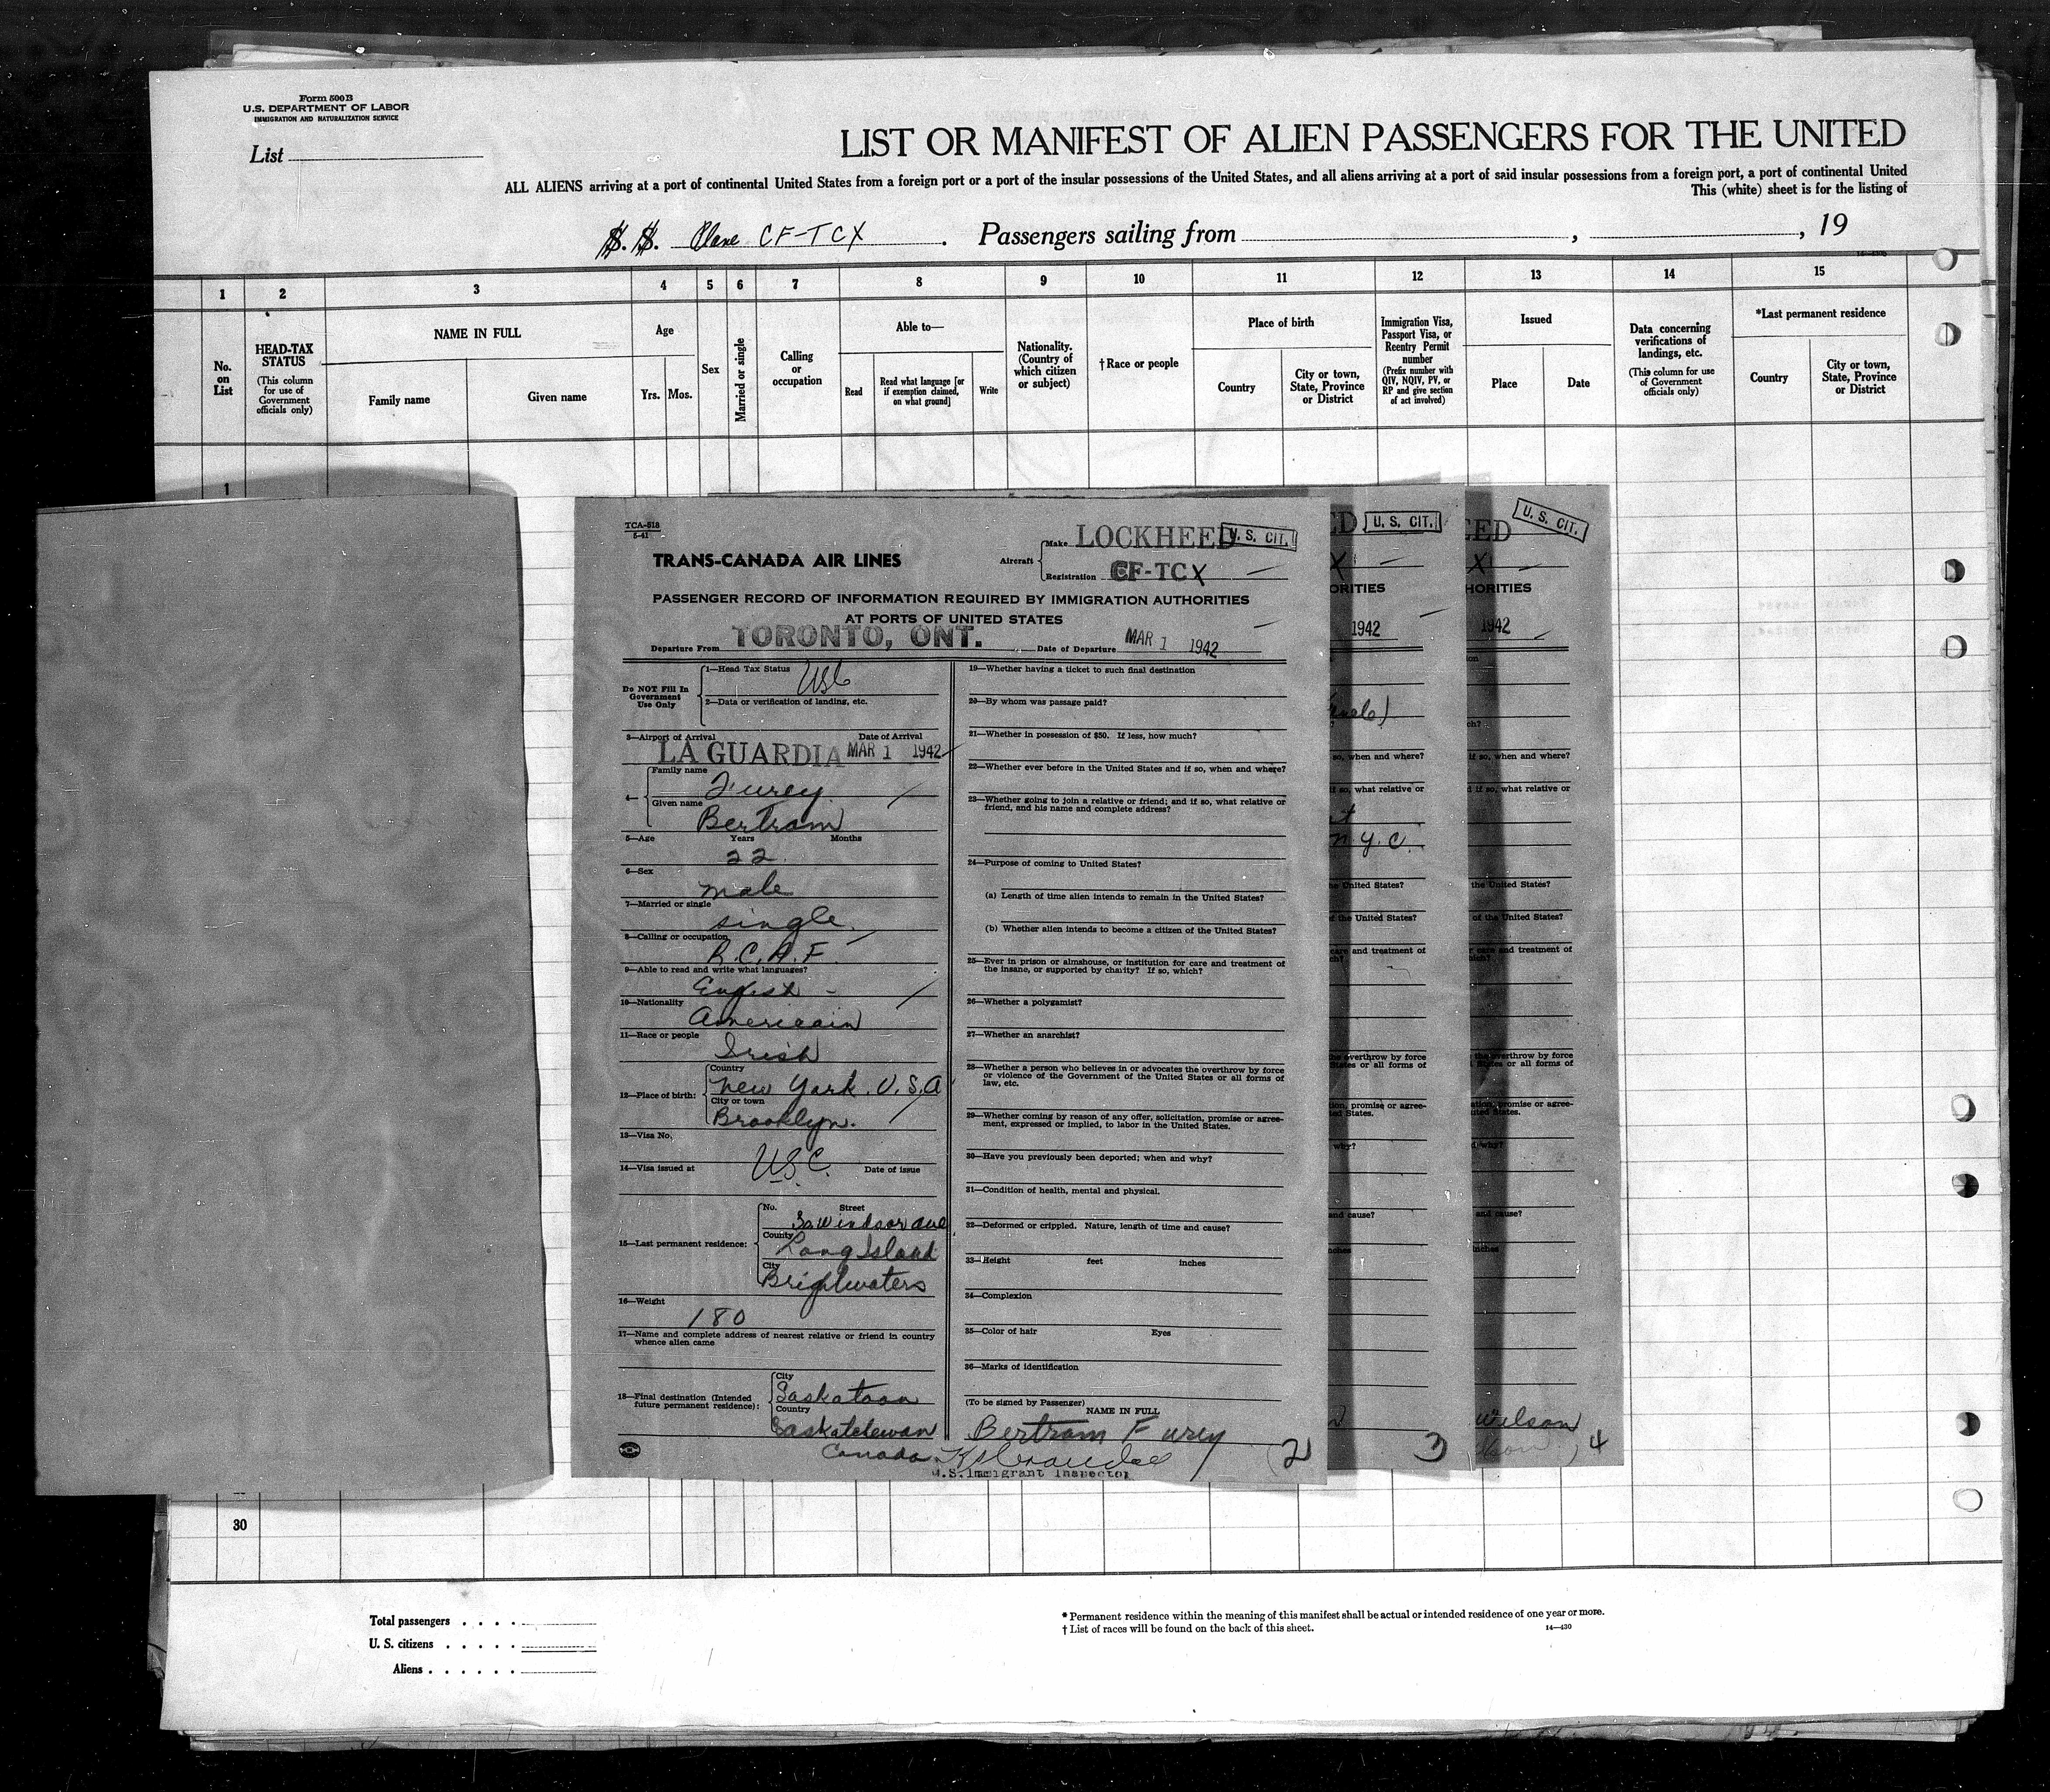 Form 500B
U.S. DEPARTMENT OF LABOR
IMMIGRATION AND NATURALIZATION SERVICE
List
LIST OR MANIFEST OF ALIEN PASSENGERS FOR THE UNITED
ALL ALIENS arriving at a port of continental United States from a foreign port or a port of the insular possessions of the United States, and all aliens arriving at a port of said insular possessions from a foreign port, a port of continental United
This (white) sheet is for the listing of
S. S. Plane CF-TCX. Passengers sailing from , , 19
1 2 3 4 5 6 7 8 9 10 11 12 13 14 15
No. on List
HEAD-TAX STATUS
(This column for use of Government officials only)
NAME IN FULL
Family name
Given name
Age
Yrs. Mos.
Sex
Married or single
Calling or occupation
Able to—
Read
Read what language [or if exemption claimed, on what ground]
Write
Nationality. (Country of which citizen or subject)
†Race or people
Place of birth
Country
City or town, State, Province or District
Immigration Visa, Passport Visa, or Reentry Permit number
(Prefix number with QIV, NQIV, PV, or RP and give section of act involved)
Issued
Place
Date
Data concerning verifications of landings, etc.
(This column for use of Government officials only)
*Last permanent residence
Country
City or town, State, Province or District
1
TCA-518
5-41
TRANS-CANADA AIR LINES
Aircraft
Make LOCKHEED
U. S. CIT.
Registration CF-TCX
PASSENGER RECORD OF INFORMATION REQUIRED BY IMMIGRATION AUTHORITIES
AT PORTS OF UNITED STATES
Departure From TORONTO, ONT. Date of Departure MAR 1 1942
Do NOT Fill In Government Use Only
1—Head Tax Status USC
2—Data or verification of landing, etc.
3—Airport of Arrival Date of Arrival
LA GUARDIA MAR 1 1942
4—
Family name Furey
Given name Bertram
5—Age Years Months
22
6—Sex
male
7—Married or single
single.
8—Calling or occupation
R.C.A.F.
9—Able to read and write what languages?
English -
10—Nationality
American
11—Race or people
Irish
12—Place of birth:
Country
New York. U.S.A
City or town
Brooklyn.
13—Visa No.
14—Visa issued at USC. Date of issue
15—Last permanent residence:
No. Street
Windsor ave
County
Long Island
City
Brightwaters
16—Weight
180
17—Name and complete address of nearest relative or friend in country
whence alien came
18—Final destination (Intended
future permanent residence):
City
Saskatoon
Country
Saskatchewan
Canada
19—Whether having a ticket to such final destination
20—By whom was passage paid?
21—Whether in possession of $50. If less, how much?
22—Whether ever before in the United States and if so, when and where?
23—Whether going to join a relative or friend; and if so, what relative or
friend, and his name and complete address?
24—Purpose of coming to United States?
(a) Length of time alien intends to remain in the United States?
(b) Whether alien intends to become a citizen of the United States?
25—Ever in prison or almshouse, or institution for care and treatment of
the insane, or supported by charity? If so, which?
26—Whether a polygamist?
27—Whether an anarchist?
28—Whether a person who believes in or advocates the overthrow by force
or violence of the Government of the United States or all forms of
law, etc.
29—Whether coming by reason of any offer, solicitation, promise or agree-
ment, expressed or implied, to labor in the United States.
30—Have you previously been deported; when and why?
31—Condition of health, mental and physical.
32—Deformed or crippled. Nature, length of time and cause?
33—Height feet inches
34—Complexion
35—Color of hair Eyes
36—Marks of identification
(To be signed by Passenger)
NAME IN FULL
Bertram Furey
U.S. Immigrant Inspector
(2)
ED
U. S. CIT.
X
ORITIES
1942
so, when and where?
if so, what relative or
n.y.c.
the United States?
of the United States?
care and treatment of
the overthrow by force
States or all forms of
tion, promise or agree-
ted States.
why?
and cause?
inches
3
EED
U. S. CIT.
X
HORITIES
1942
if so, when and where?
d if so, what relative or
the United States?
of the United States?
r care and treatment of
the overthrow by force
States or all forms of
ation, promise or agree-
nited States.
why?
and cause?
inches
Wilson
4
30
Total passengers
U. S. citizens
Aliens
* Permanent residence within the meaning of this manifest shall be actual or intended residence of one year or more.
† List of races will be found on the back of this sheet.
14—430